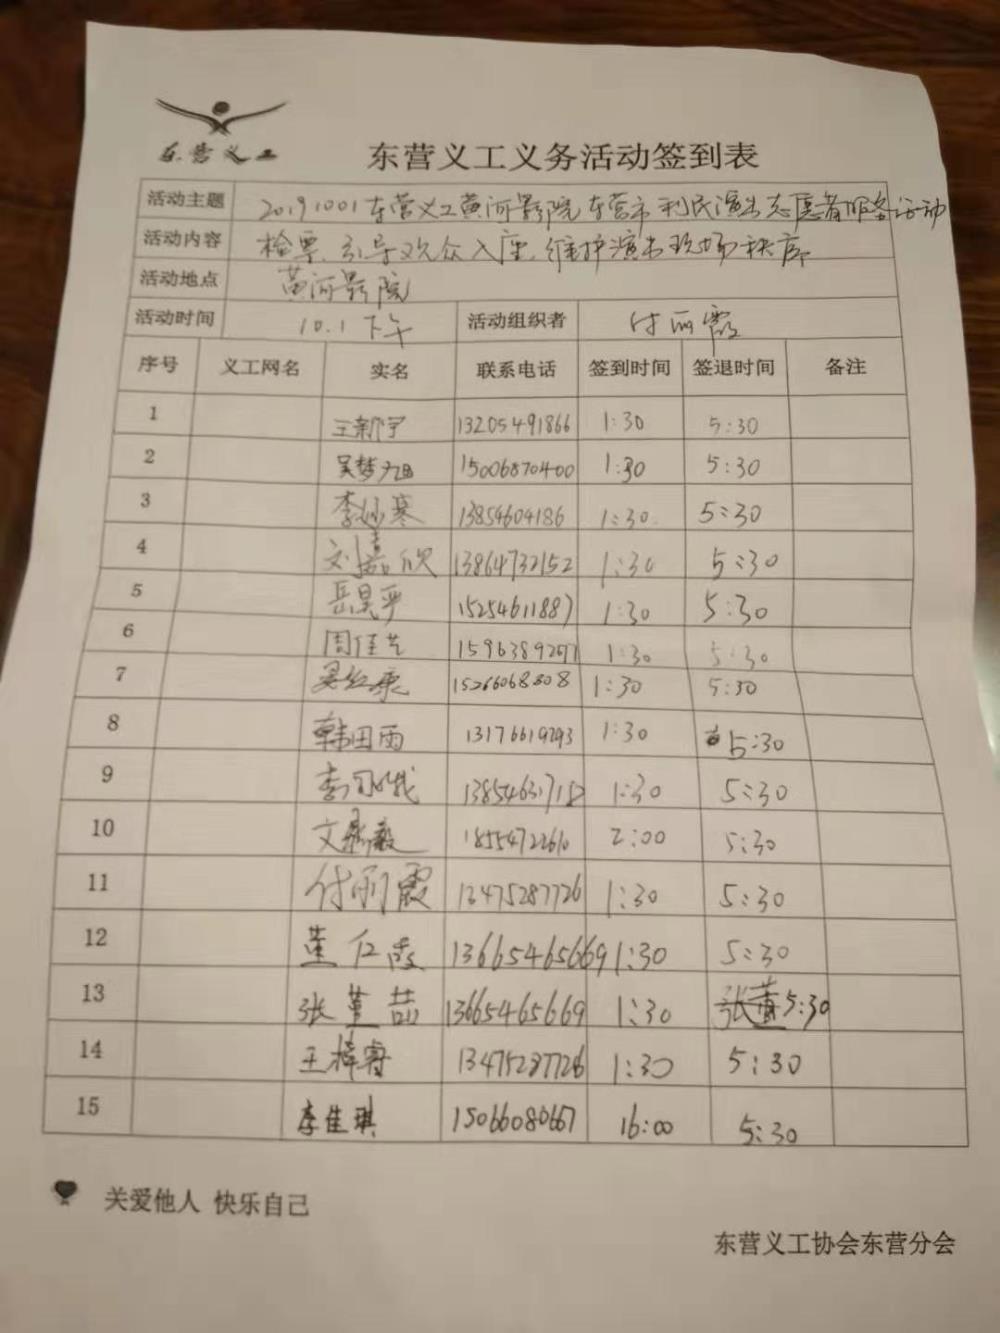 东营义工
东营义工义务活动签到表
活动主题 20191001东营义工黄河影院东营市利民演出志愿者服务活动
活动内容 检票、引导观众入座、维护演出现场秩序
活动地点 黄河影院
活动时间 10.1下午 活动组织者 付丽霞
序号 义工网名 实名 联系电话 签到时间 签退时间 备注
1 王新宇 13205491866 1:30 5:30
2 吴梦旭 15006870400 1:30 5:30
3 李沁寒 13854604186 1:30 5:30
4 刘嘉欣 13864732152 1:30 5:30
5 岳昊平 15254611887 1:30 5:30
6 周佳艺 1:30 5:30
7 15266068808 1:30 5:30
8 韩田雨 13176619293 1:30 5:30
9 13854631718 1:30 5:30
10 文鼎毅 18554722610 2:00 5:30
11 付丽霞 13475287726 1:30 5:30
12 董仁霞 13665465669 1:30 5:30
13 张堇喆 13665465669 1:30 5:30
14 王梓睿 13475287726 1:30 5:30
15 李佳琪 15066080667 16:00 5:30
关爱他人 快乐自己
东营义工协会东营分会